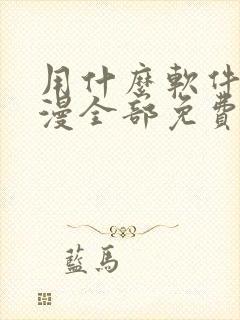 用什麼軟件
漫全部免費
藍馬